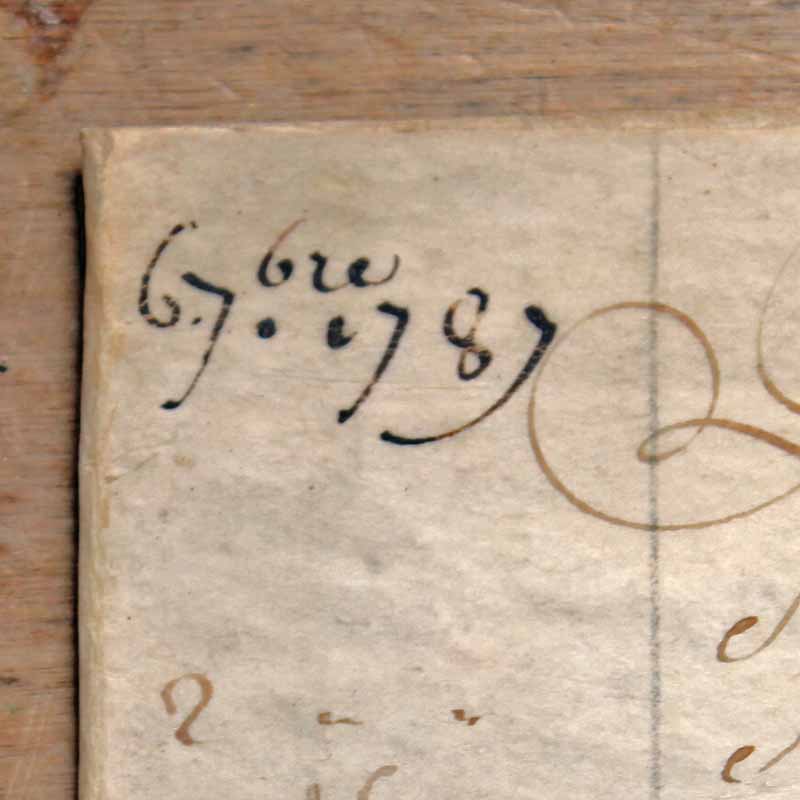 6 7bre 1787
2 " "